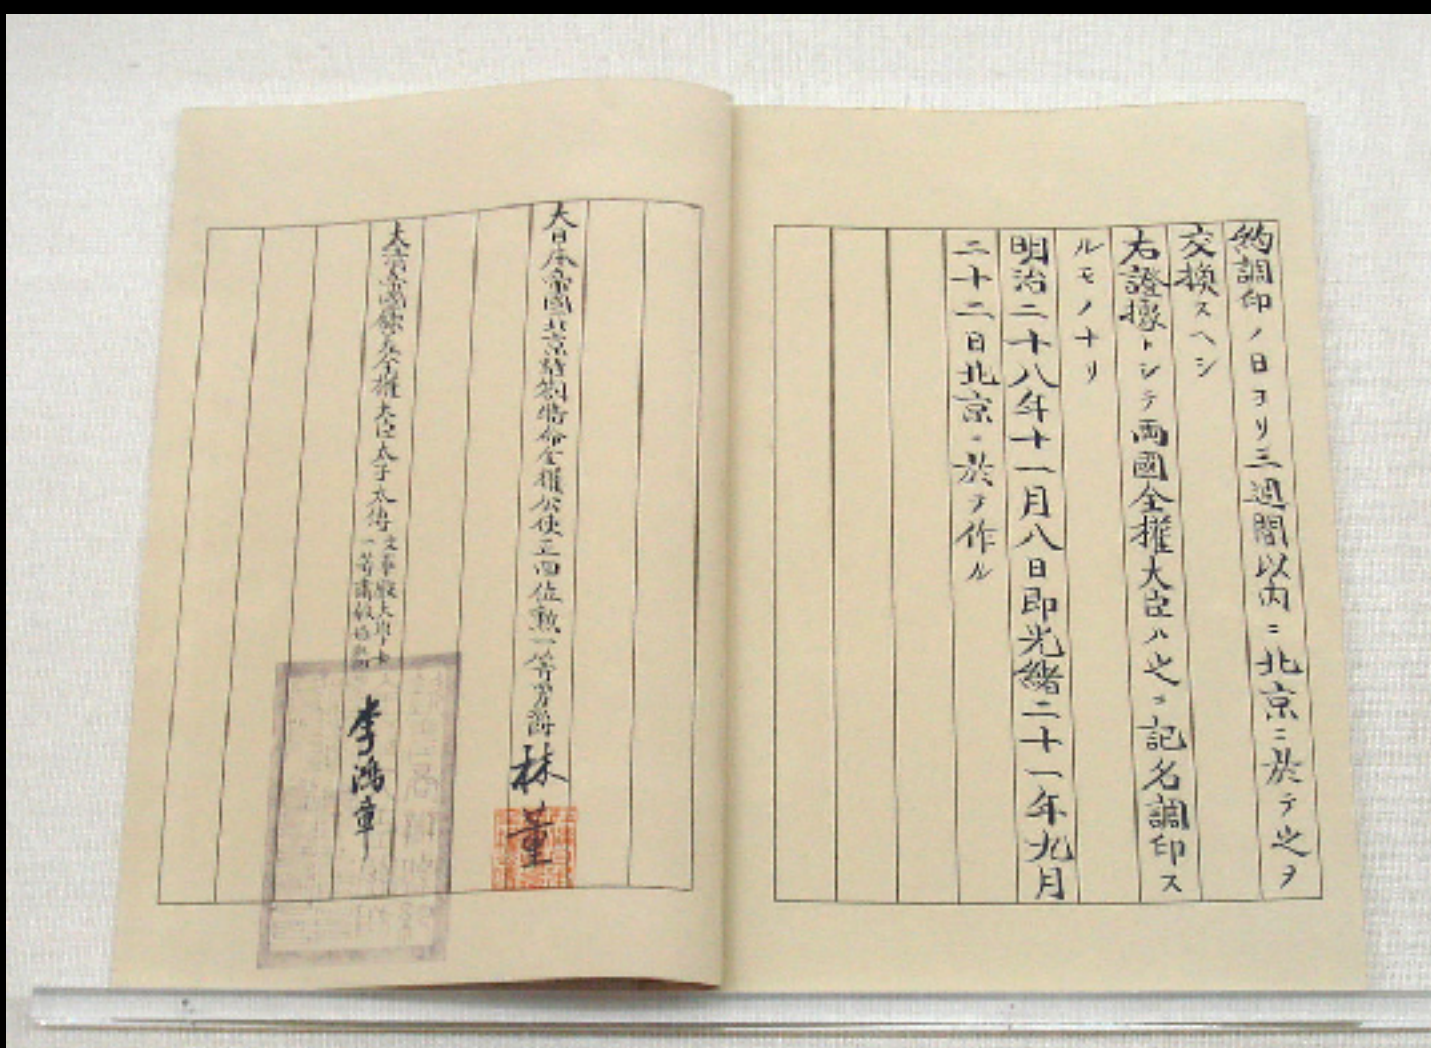 約調印ノ日ヨリ三週間以内ニ北京ニ於テ之ヲ
交換スヘシ
右證據トシテ兩國全權大臣ハ之ニ記名調印ス
ルモノナリ
明治二十八年十一月八日即光緒二十一年九月
二十二日北京ニ於テ作ル
大日本帝國北京駐劄特命全權公使正四位勲一等男爵 林董
大清帝國欽差全權大臣太子太傅 文華殿大學士 一等肅毅伯 李鴻章